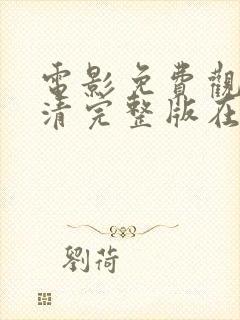 電影免費觀
清完整版在
劉荷